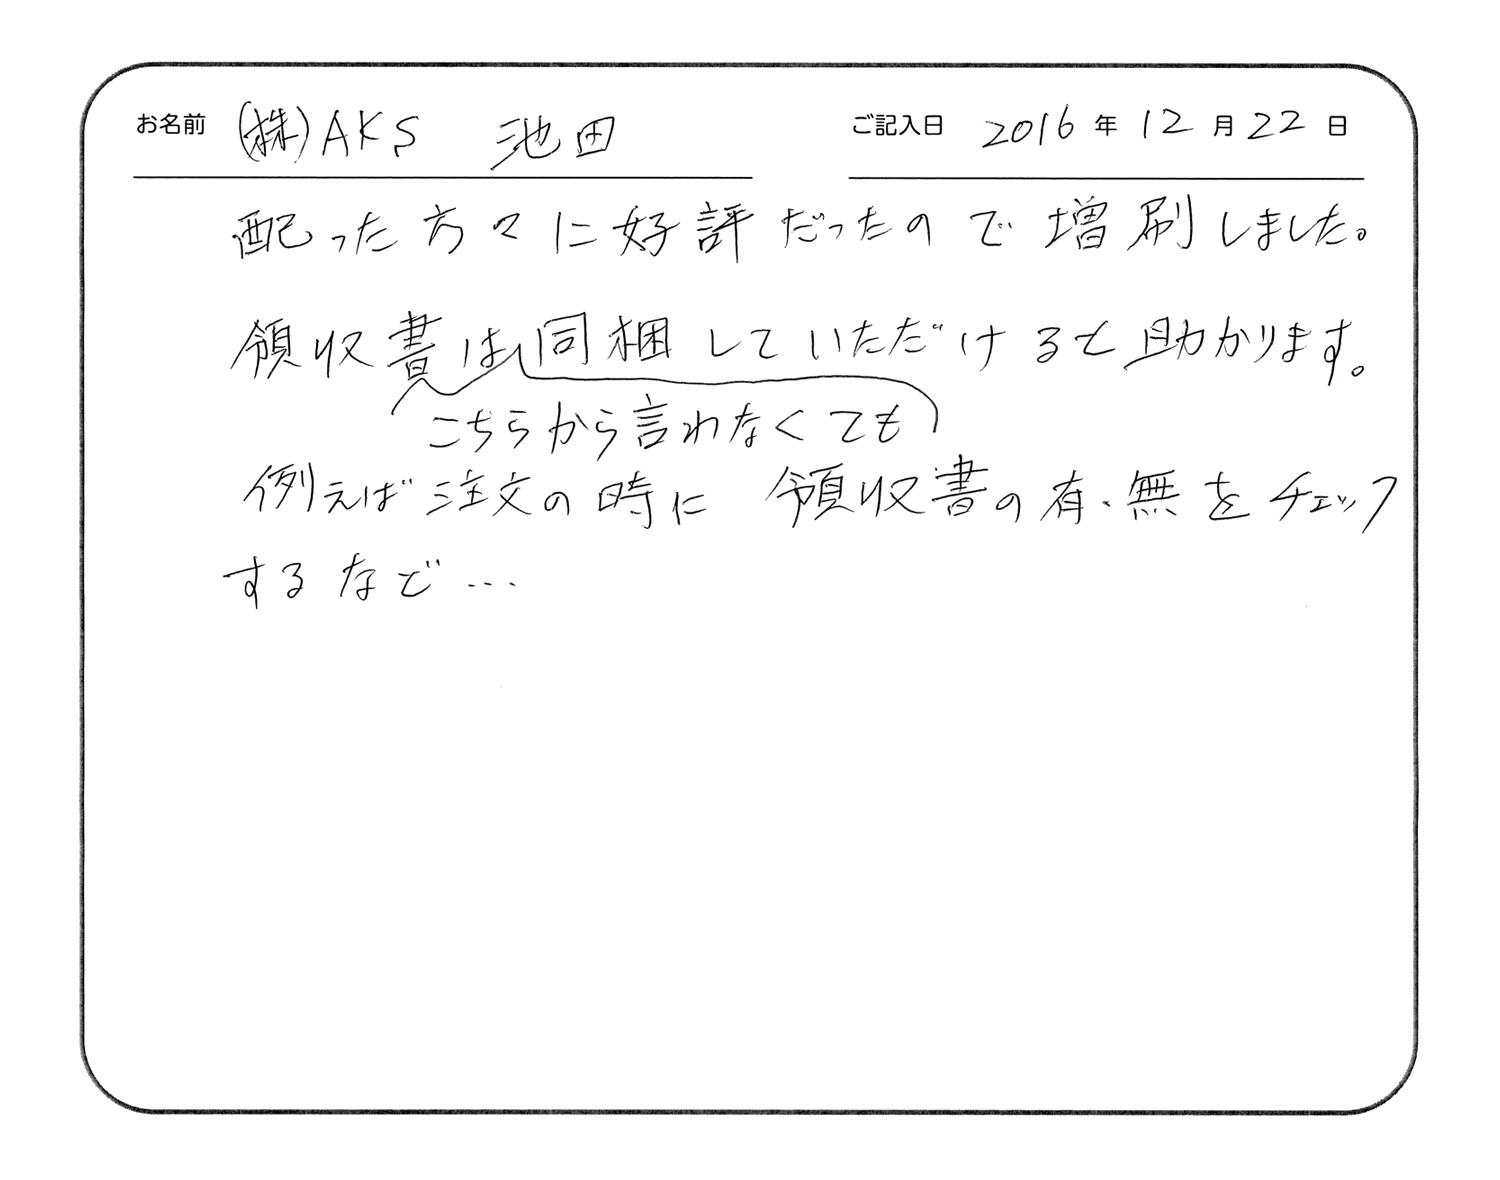 お名前 (株)AKS 池田 ご記入日 2016年12月22日
配った方々に好評だったので増刷しました。
領収書は同梱していただけると助かります。
こちらから言われなくても
例えば注文の時に 領収書の有・無をチェック
するなど…